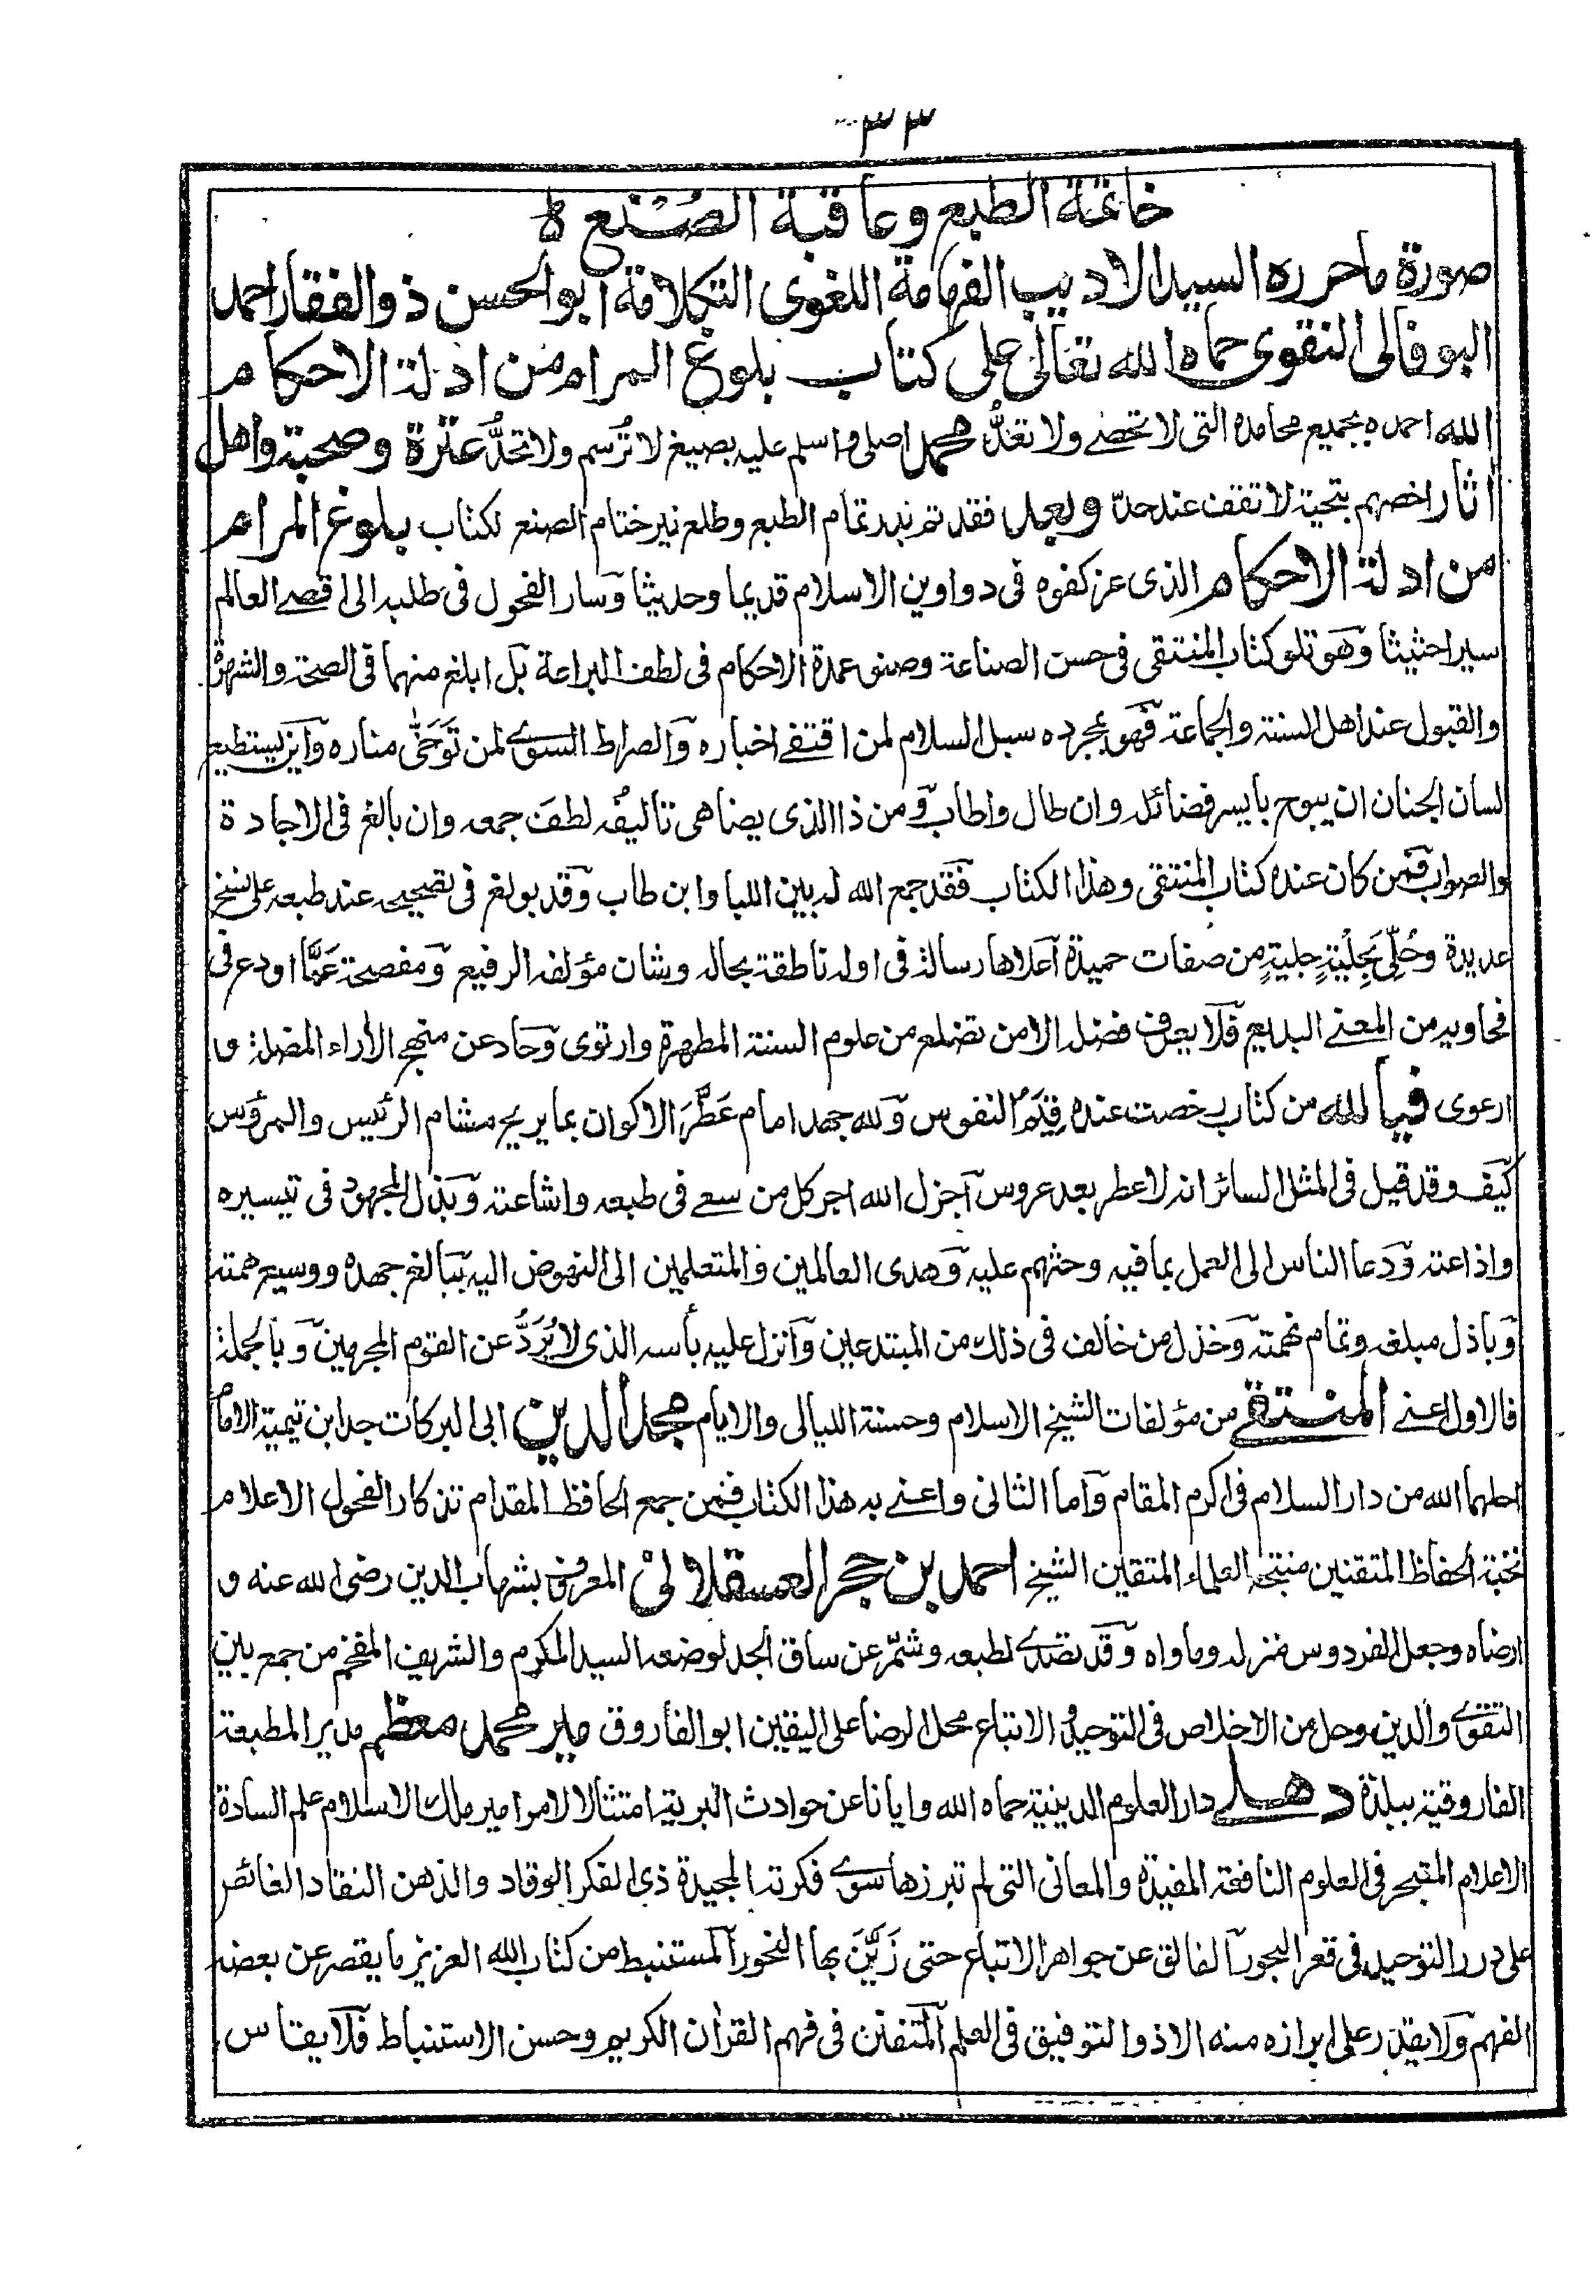 ٣٣
خاتمة الطبع وعاقبة الصُنع ط
صورة ما حرره السيد الاديب الفهامة اللغوى التكلامة ابو الحسن ذو الفقار احمد
البوفالى النقوى حماه الله تعالى على كتاب بلوغ المرام من ادلة الاحكام
الله احمده بجميع محامده التى لا تحصے ولا تعدُّ محمد اصلى واسلم عليه بصيغ لا تُرسم ولا تحدُّ عترة وصحبة واهل
اثار اخصهم بتحية لا تقف عند حدّ وبعد فقد تم بدر تمام الطبع وطلع نير ختام الصنع لكتاب بلوغ المرام
من ادلة الاحكام الذى عز كفوه فى دواوين الاسلام قديما وحديثا وسار الفحول فى طلبه الى اقصے العالم
سيرا حثيثا وهو تلو كتاب المنتقى فى حسن الصناعة وصنو عمدة الاحكام فى لطف البراعة بل ابلغ منهما فى الصحة والشهرة
والقبول عند اهل السنة والجماعة فهو بمجرده سبل السلام لمن اقتفے اخباره والصراط السوے لمن تَوَخّٰى مناره واين يستطيع
لسان الجنان ان يبوح بايسر فضائله وان طال واطاب ومن ذا الذى يضاهى تاليفُه لطفَ جمعه وان بالغ فى الاجادة
والصواب فمن كان عنده كتاب المنتقى وهذا الكتاب فقد جمع الله له بين اللبا وابن طاب وقد بولغ فى تصحيحه عند طبعه على نسخ
عديدة وحُلِّى بحِلْيَةٍ جليةٍ من صفات حميدة اعلاها رسالة فى اوله ناطقة بحاله وشان مؤلفه الرفيع ومفصحة عَمَّا اودع فى
فحاويه من المعنے البديع فلا يعرف فضله الا من تضلع من علوم السنة المطهرة وارتوى وحاد عن منهج الأراء المضلة و
ارعوى فيا لله من كتاب رخصت عنده قِيَمُ النفوس ولله جهد امام عَطَّرَ الاكوان بما يريح مشام الرئيس والمرؤس
كيف وقد قيل فى المثل السائر انه لا عطر بعد عروس اجزل الله اجر كل من سعے فى طبعه واشاعته وبذل المجهود فى تيسيره
واذاعته ودعا الناس الى العمل بما فيه وحثهم عليه وهدى العالمين والمتعلمين الى النهوض اليه ببالغ جهده ووسيع همته
وباذل مبلغه وتمام نهمته وخذل من خالف فى ذلك من المبتدعين وانزل عليه بأسه الذى لا يُرَدُّ عن القوم المجرمين وبالجملة
فالاول اعنے المنتقے من مؤلفات الشيخ الاسلام وحسنة الليالى والايام مجد الدين ابى البركات جد ابن تيمية الامام
احلهما الله من دار السلام فى اكرم المقام واما الثانى واعنے به هذا الكتاب فمن جمع الحافظ المقدام تذكار الفحول الاعلام
نخبة الحفاظ المتقنين منتجة العلماء المتقين الشيخ احمد بن حجر العسقلانى المعروف بشهاب الدين رضى الله عنه و
ارضاه وجعل الفردوس منزله وماواه وقد تصدے لطبعه وشمّر عن ساق الجد لوضعه السيد المكرم والشريف المفخم من جمع بين
التقوے والدين وحل من الاخلاص فى التوحيد والاتباع محل الرضا على اليقين ابو الفاروق مير محمد معظم مدير المطبعة
الفاروقية ببلدة دهلے دار العلوم الدينية حماه الله وايانا عن حوادث البرية امتثالا لامر امير ملك الاسلام علم السادة
الاعلام المتبحر فى العلوم النافعة المفيدة والمعانى التى لم تبرزها سوے فكرته المجيدة ذى الفكر الوقاد والذهن النقاد الغائص
على درر التوحيد فى قعر البحور الفالق عن جواهر الاتباع حتى زَيَّنَ بها النحور المستنبط من كتاب الله العزيز ما يقصر عن بعضه
الفهم ولا يقدر على ابرازه منه الا ذو التوفيق فى العلم المتفنن فى فهم القران الكريم وحسن الاستنباط فلا يقاس